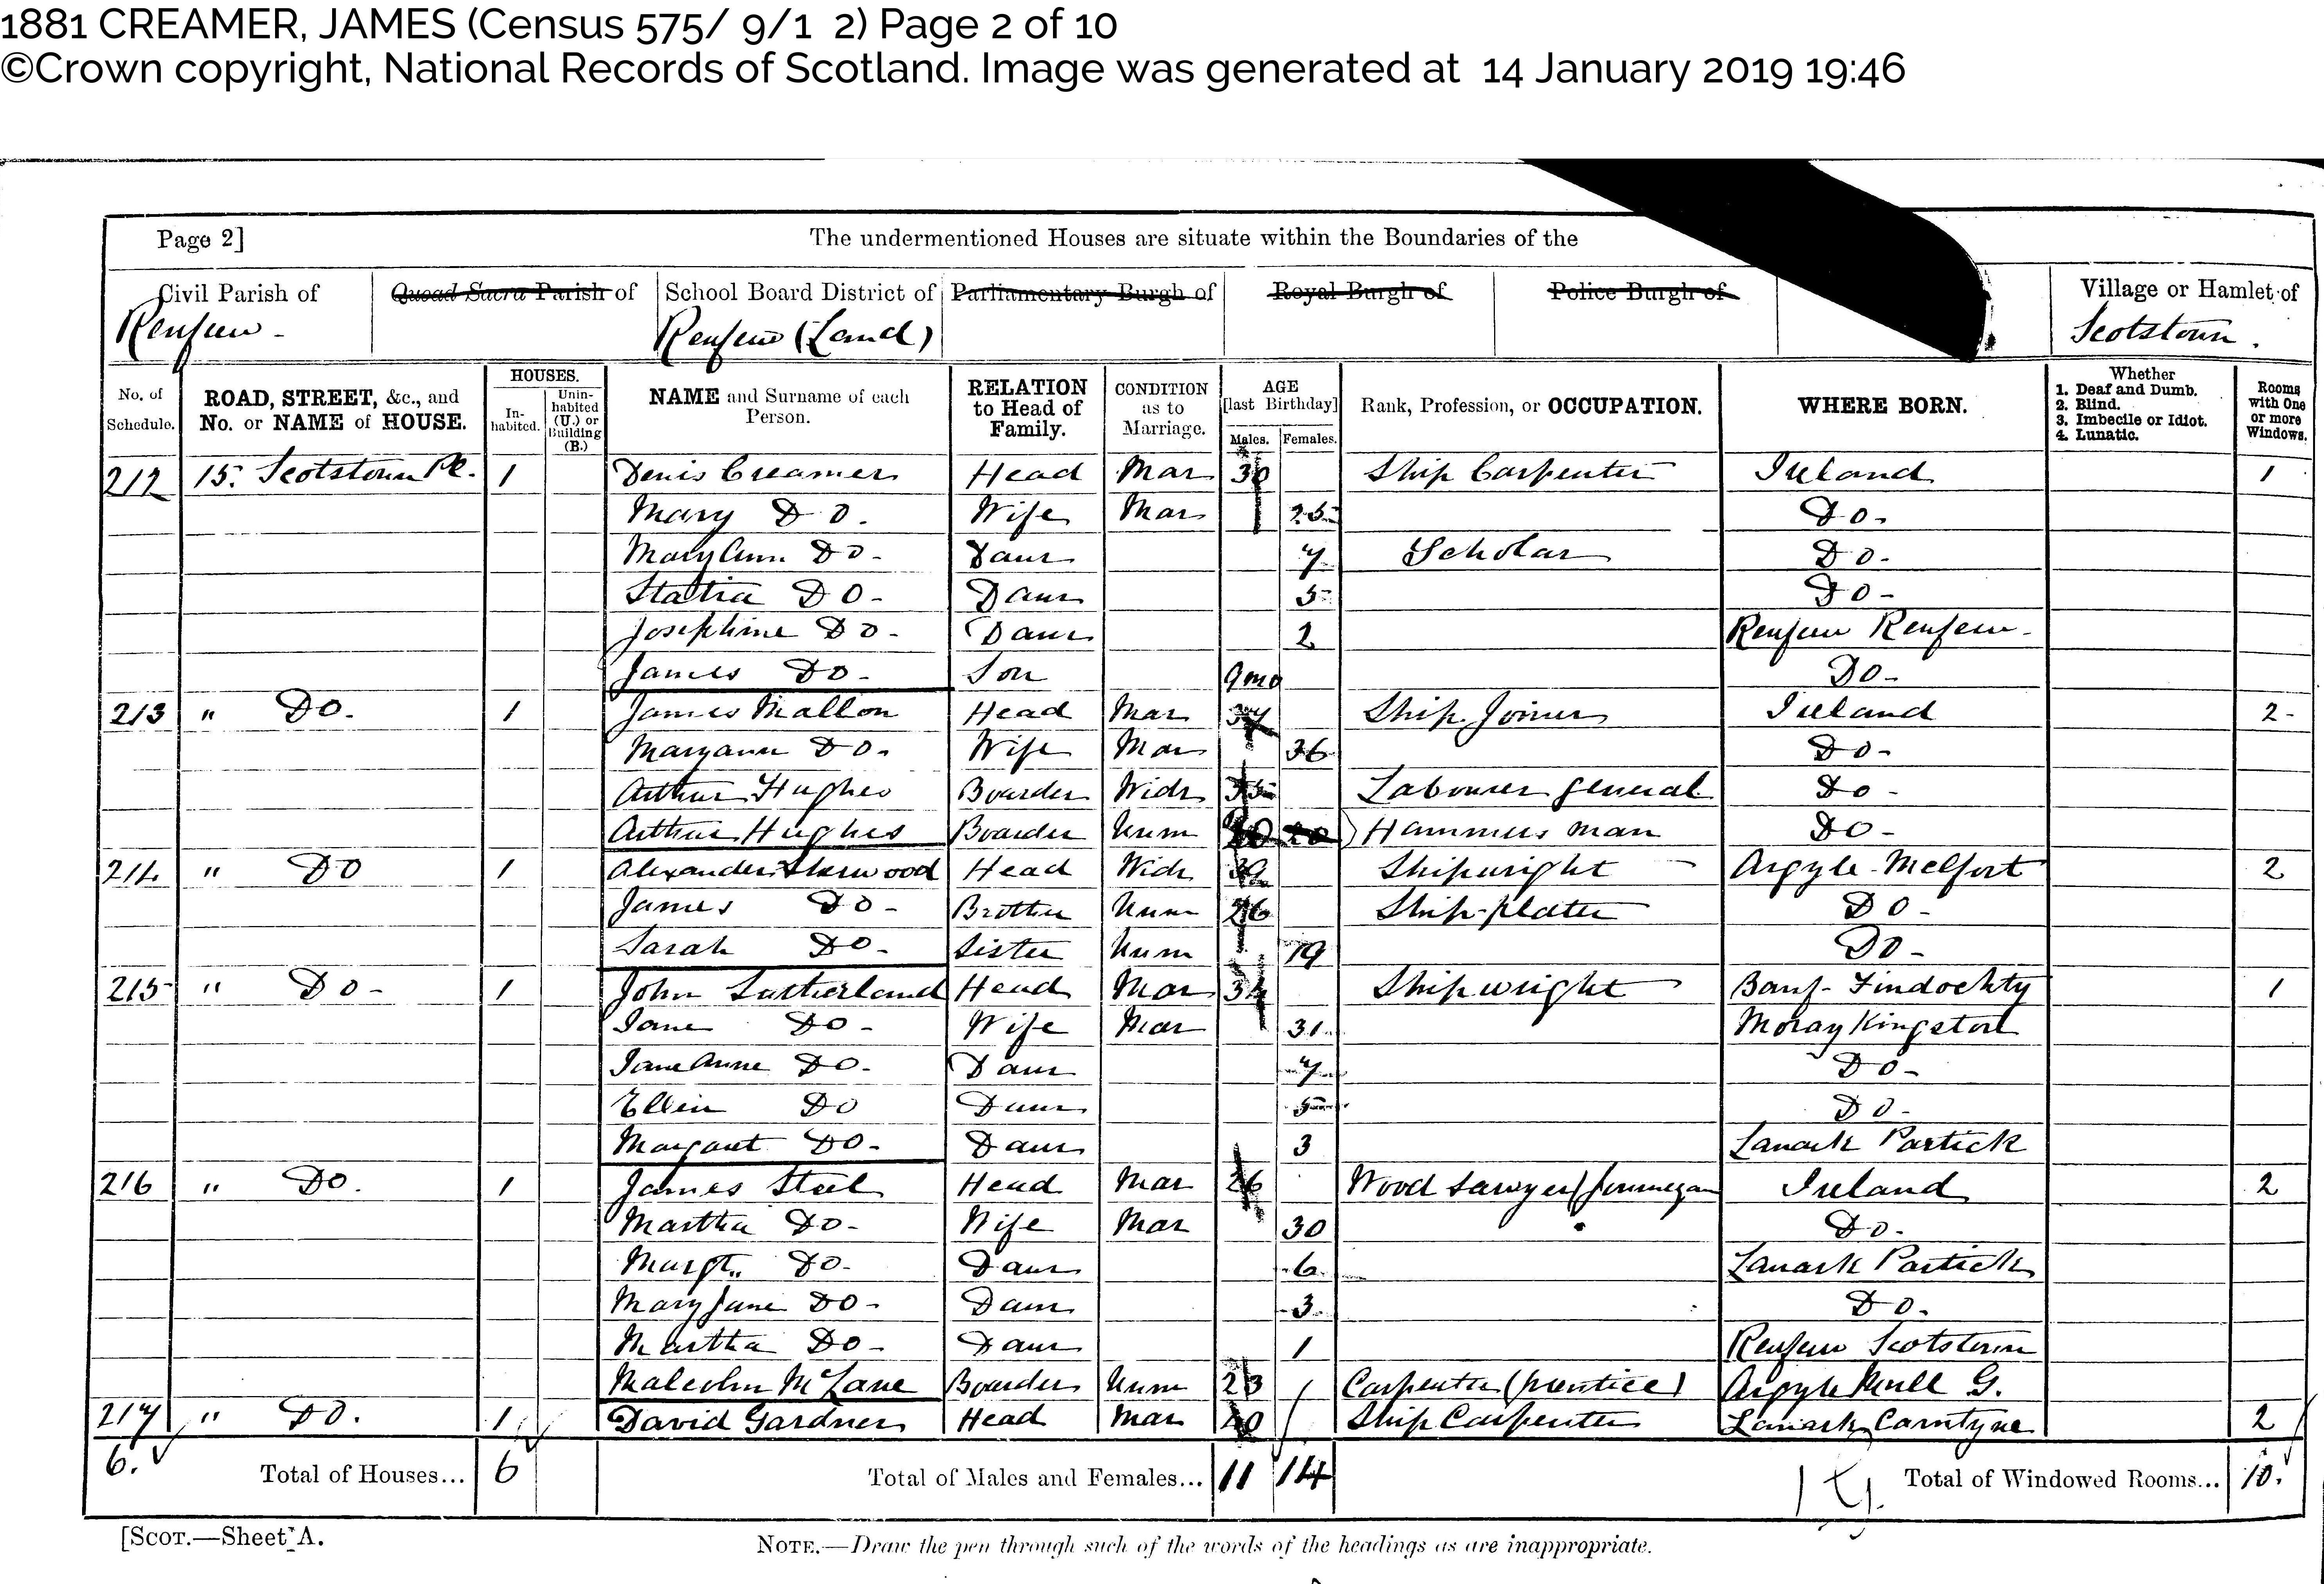 1881 CREAMER, JAMES (Census 575/ 9/1 2) Page 2 of 10
©Crown copyright, National Records of Scotland. Image was generated at 14 January 2019 19:46
Page 2] The undermentioned Houses are situate within the Boundaries of the
Civil Parish of Quoad Sacra Parish of School Board District of Parliamentary Burgh of Royal Burgh of Police Burgh of Village or Hamlet of
Renfrew - Renfrew (Land) Scotstown.
No. of Schedule. ROAD, STREET, &c., and No. or NAME of HOUSE. HOUSES. In-habited. Unin-habited (U.) or Building (B.) NAME and Surname of each Person. RELATION to Head of Family. CONDITION as to Marriage. AGE [last Birthday] Males. Females. Rank, Profession, or OCCUPATION. WHERE BORN. Whether 1. Deaf and Dumb. 2. Blind. 3. Imbecile or Idiot. 4. Lunatic. Rooms with One or more Windows.
212 15. Scotstown Pl. 1 Denis Creamer Head Mar 30 Ship Carpenter Ireland 1
Mary Do. Wife Mar 25 Do.
Mary Ann Do- Daur 7 Scholar Do-
Statia Do- Daur 5 Do-
Josephine Do- Daur 2 Renfrew Renfrew-
James Do- Son 9mo Do-
213 " Do. 1 James Mallon Head Mar 34 Ship Joiner Ireland 2-
Maryann Do. Wife Mar 36 Do-
Arthur Hughes Boarder Widr Labourer general Do-
Arthur Hughes Boarder Unm 20 20 Hammers man Do-
214 " Do 1 Alexander Sherwood Head Widr 32 Shipwright Argyle-Melfort 2
James Do- Brother Unm 26 Ship-plater Do-
Sarah Do- Sister Unm 19 Do-
215 " Do- 1 John Sutherland Head Mar 34 Shipwright Banf- Findochty 1
Jane Do- Wife Mar 31 Moray Kingston
Jane Anne Do. Daur 7 Do-
Ellein Do Daur 5 Do-
Margaret Do- Daur 3 Lanark Partick
216 " Do. 1 James Steel Head Mar 26 Wood Sawyer Ireland 2
Martha Do- Wife Mar 30 Do-
Margt. Do- Daur 6 Lanark Partick
Mary Jane Do- Daur 3 Do.
Martha Do- Daur 1 Renfrew Scotstown
Malcolm McLane Boarder Unm 23 Carpenter (prentice) Argyle Mull G.
217 " Do. 1 David Gardner Head Mar 40 Ship Carpenter Lanark Carntyne 2
6. Total of Houses... 6 Total of Males and Females... 11 14 Total of Windowed Rooms... 10.
[SCOT.—Sheet A. NOTE.—Draw the pen through such of the words of the headings as are inappropriate.